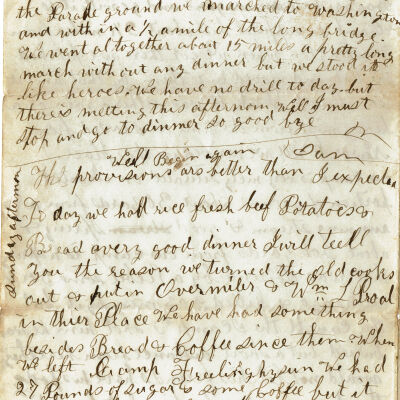 the Parade ground we marched to Washington
and with in a ½ a mile of the long bridge.
We went al together about 15 miles a pretty long
march with out any dinner but we stood it
like heroes. We have no drill to day but
there is meeting this afternoon Well I must
stop and go to dinner so good bye
Sam
Sunday afternoon
Well Begin again
The provisions ars better than I expected
To day we had rice fresh beef Potatoes &
Bread avery good dinner I will teell
you the reason we turned the old cooks
out & put in Overmiler & Wm L Boal
in thier Place We have had something
besides Bread & Coffee since them & When
We left Camp Freelinghysun We had
27 Pounds of sugar & some Coffee but it